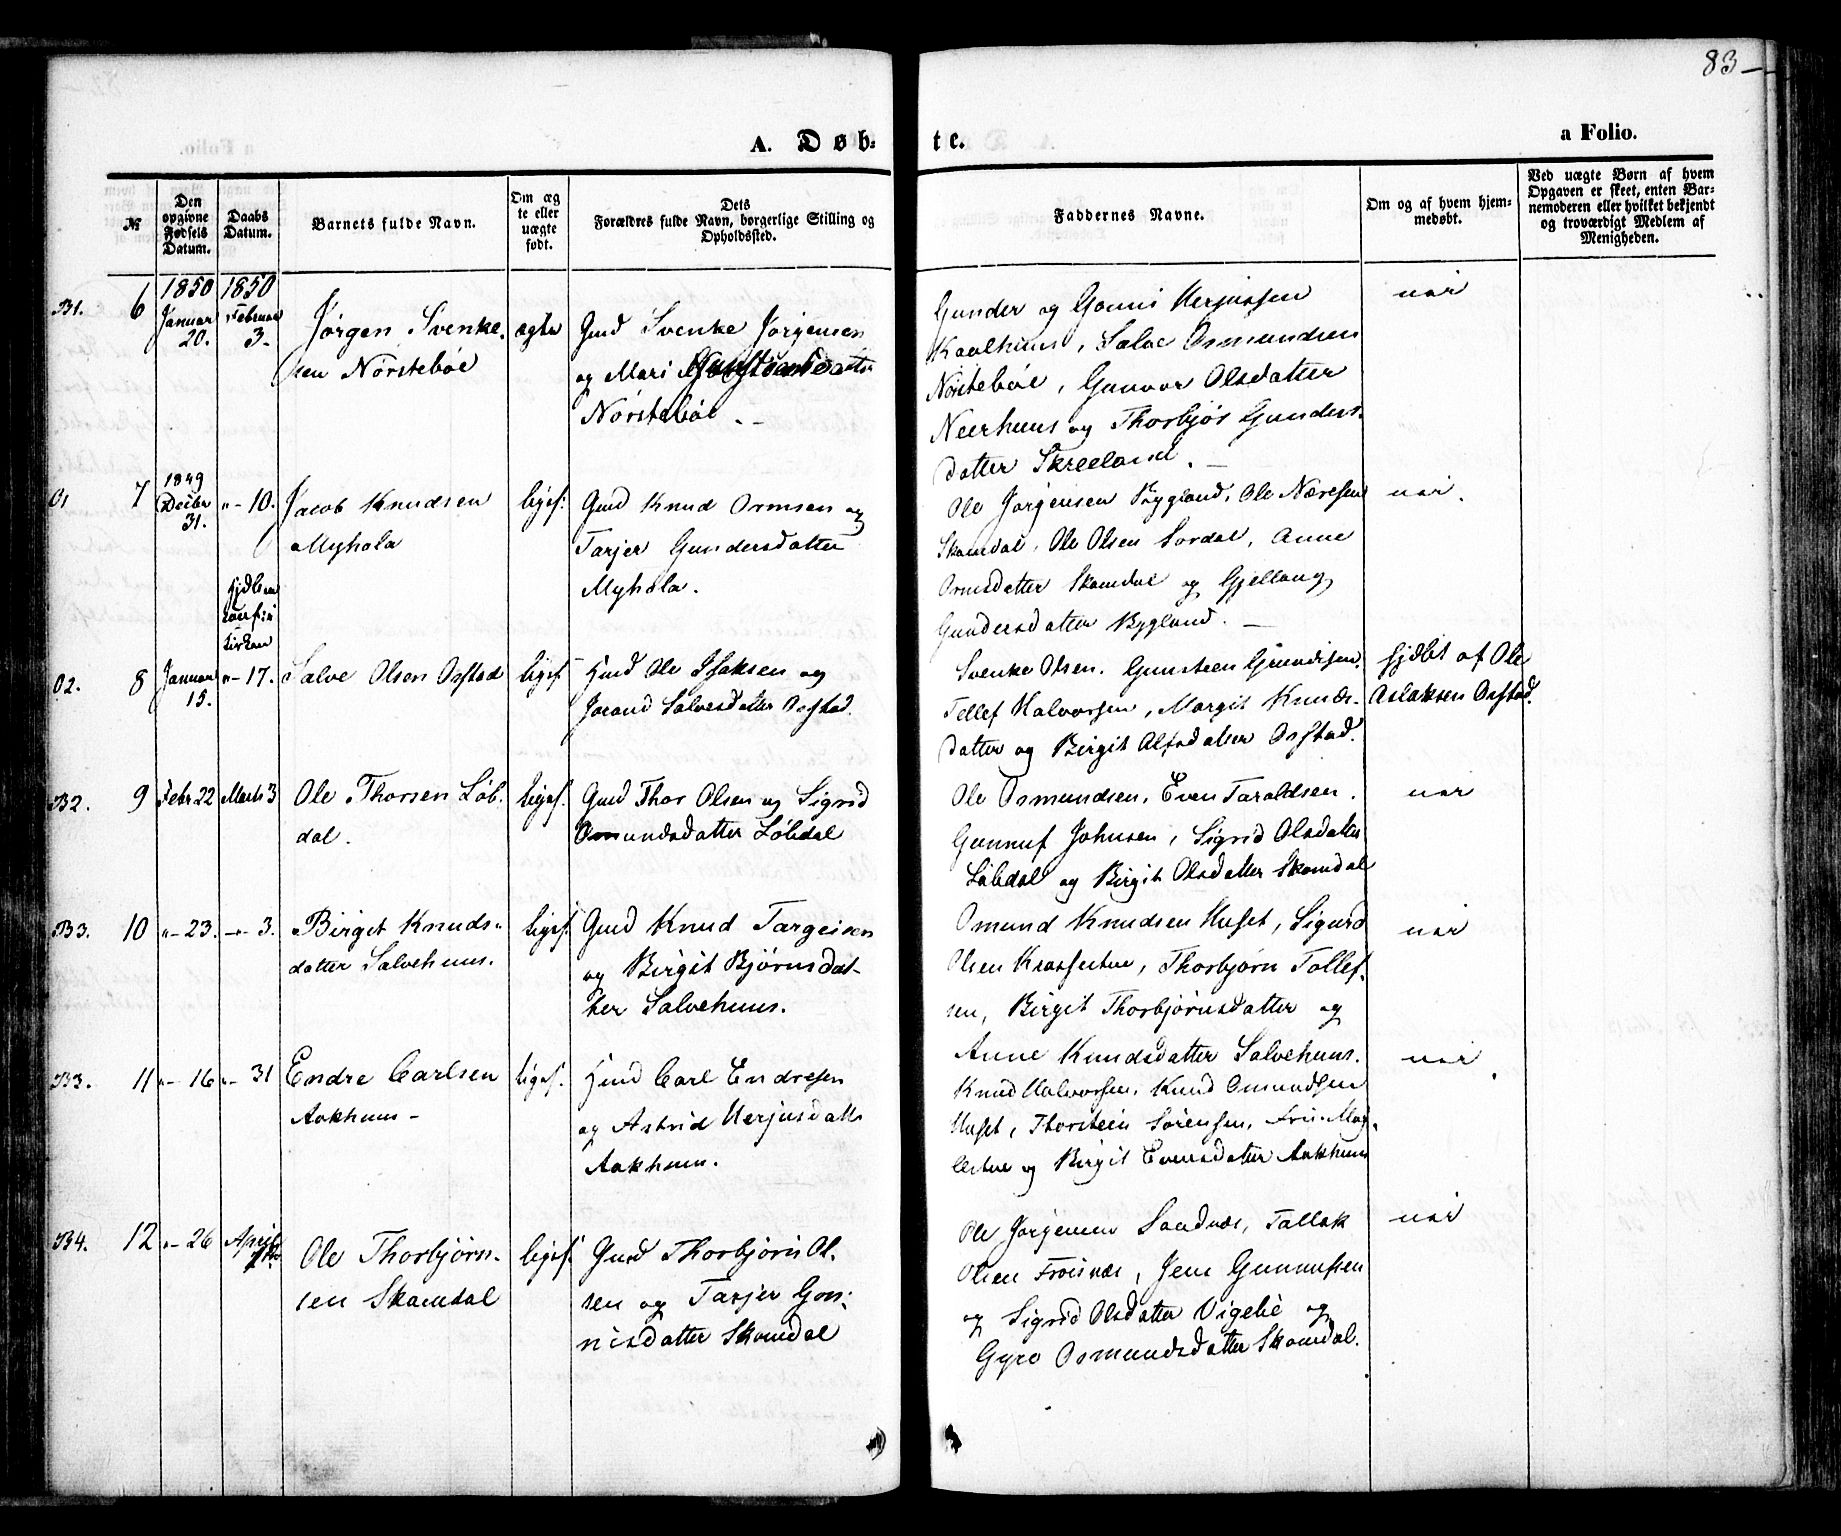 83
A. Døb-
te.
a Folio.
№
Den opgivne Fødsels Datum.
Daabs Datum.
Barnets fulde Navn.
Om ægte eller uægte født.
Dets Forældres fulde Navn, borgerlige Stilling og Opholdssted.
Faddernes Navne.
Om og af hvem hjemmedøbt.
Ved uægte Børn af hvem Opgaven er skeet, enten Barnemoderen eller hvilket bekjendt og troværdigt Medlem af Menigheden.
B1. 6
1850 Januar 20.
1850 Februar 3.
Jørgen Svenke-
sen Nörstebøe
ægte
Gmd Svenke Jørgensen
og Mari
Nörstebøe.
Gunder og Gonni Herjussen
Kaalhuus, Salve Osmundsen
Nörstebøe, Gunvor Olsdatter
Neerhuus og Thorbjør Gunders-
datter Skreeland.
nei
O1 7
1849 Decbr 31.
"- 10.
Jacob Knudsen
Myhola
liges:
Gmd Knud Ormsen og
Tarjer Gundersdatter
Myhola.
Ole Jørgensen Bygland, Ole Næresen
Skamdal, Ole Olsen Sordal, Anne
Ormsdatter Skamdal og Gjellaug
Gundersdatter Bygland.
nei.
O2. 8
Januar 15.
"- 17.
Salve Olsen Ousstad
ligef
Hmd Ole Isaksen og
Jorand Salvesdatter
Svenke Olsen, Gunsteen
Tellef Halvorsen, Margit Knuds-
datter og Birgit Alfsdatter
hjdbt af Ole
Aslaksen
B2. 9
Febr 22
Marts 3
Ole Thorsen Löb-
dal.
ligef.
Gmd Thor Olsen og Sigrid
Omundsdatter Löbdal
Ole Osmundsen, Even Taraldsen.
Gunnuf Johnsen, Sigrid Olsdatter
Löbdal og Birgit Olsdatter Skamdal
nei
B3. 10
"- 23.
-"- 3.
Birget Knuds-
datter Salvehuus.
ligef.
Gmd Knud Targeisen
og Birgit Bjørnsdat-
ter Salvehuus.
Omund Knudsen Huset, Sigurd
Olsen, Thorbjørn Tollef-
sen, Birgit Thorbjörnsdatter og
Anne Knudsdatter Salvehuus.
nei
B3. 11
"- 16
"- 31
Endre Carlsen
Aakhuus -
ligef.
Hmd Carl Endresen
og Astrid Herjusdatter
Aakhuus.
Knud Halvorsen, Knud Omundsen
Huset, Thorstein Sörensen,
og Birgit Evensdatter Aakhuus
nei
B4. 12
"- 26
April
Ole Thorbjørn-
sen Skamdal
ligef.
Gmd Thorbjörn Ol-
sen og Tarjer Gon-
nisdatter Skamdal
Ole Jørgensen Sandnæs, Tallak
Olsen Froisnæs, Jens Gunnufsen
og Sigrid Olsdatter Vigelie og
Gyro Osmundsdatter Skamdal.
nei